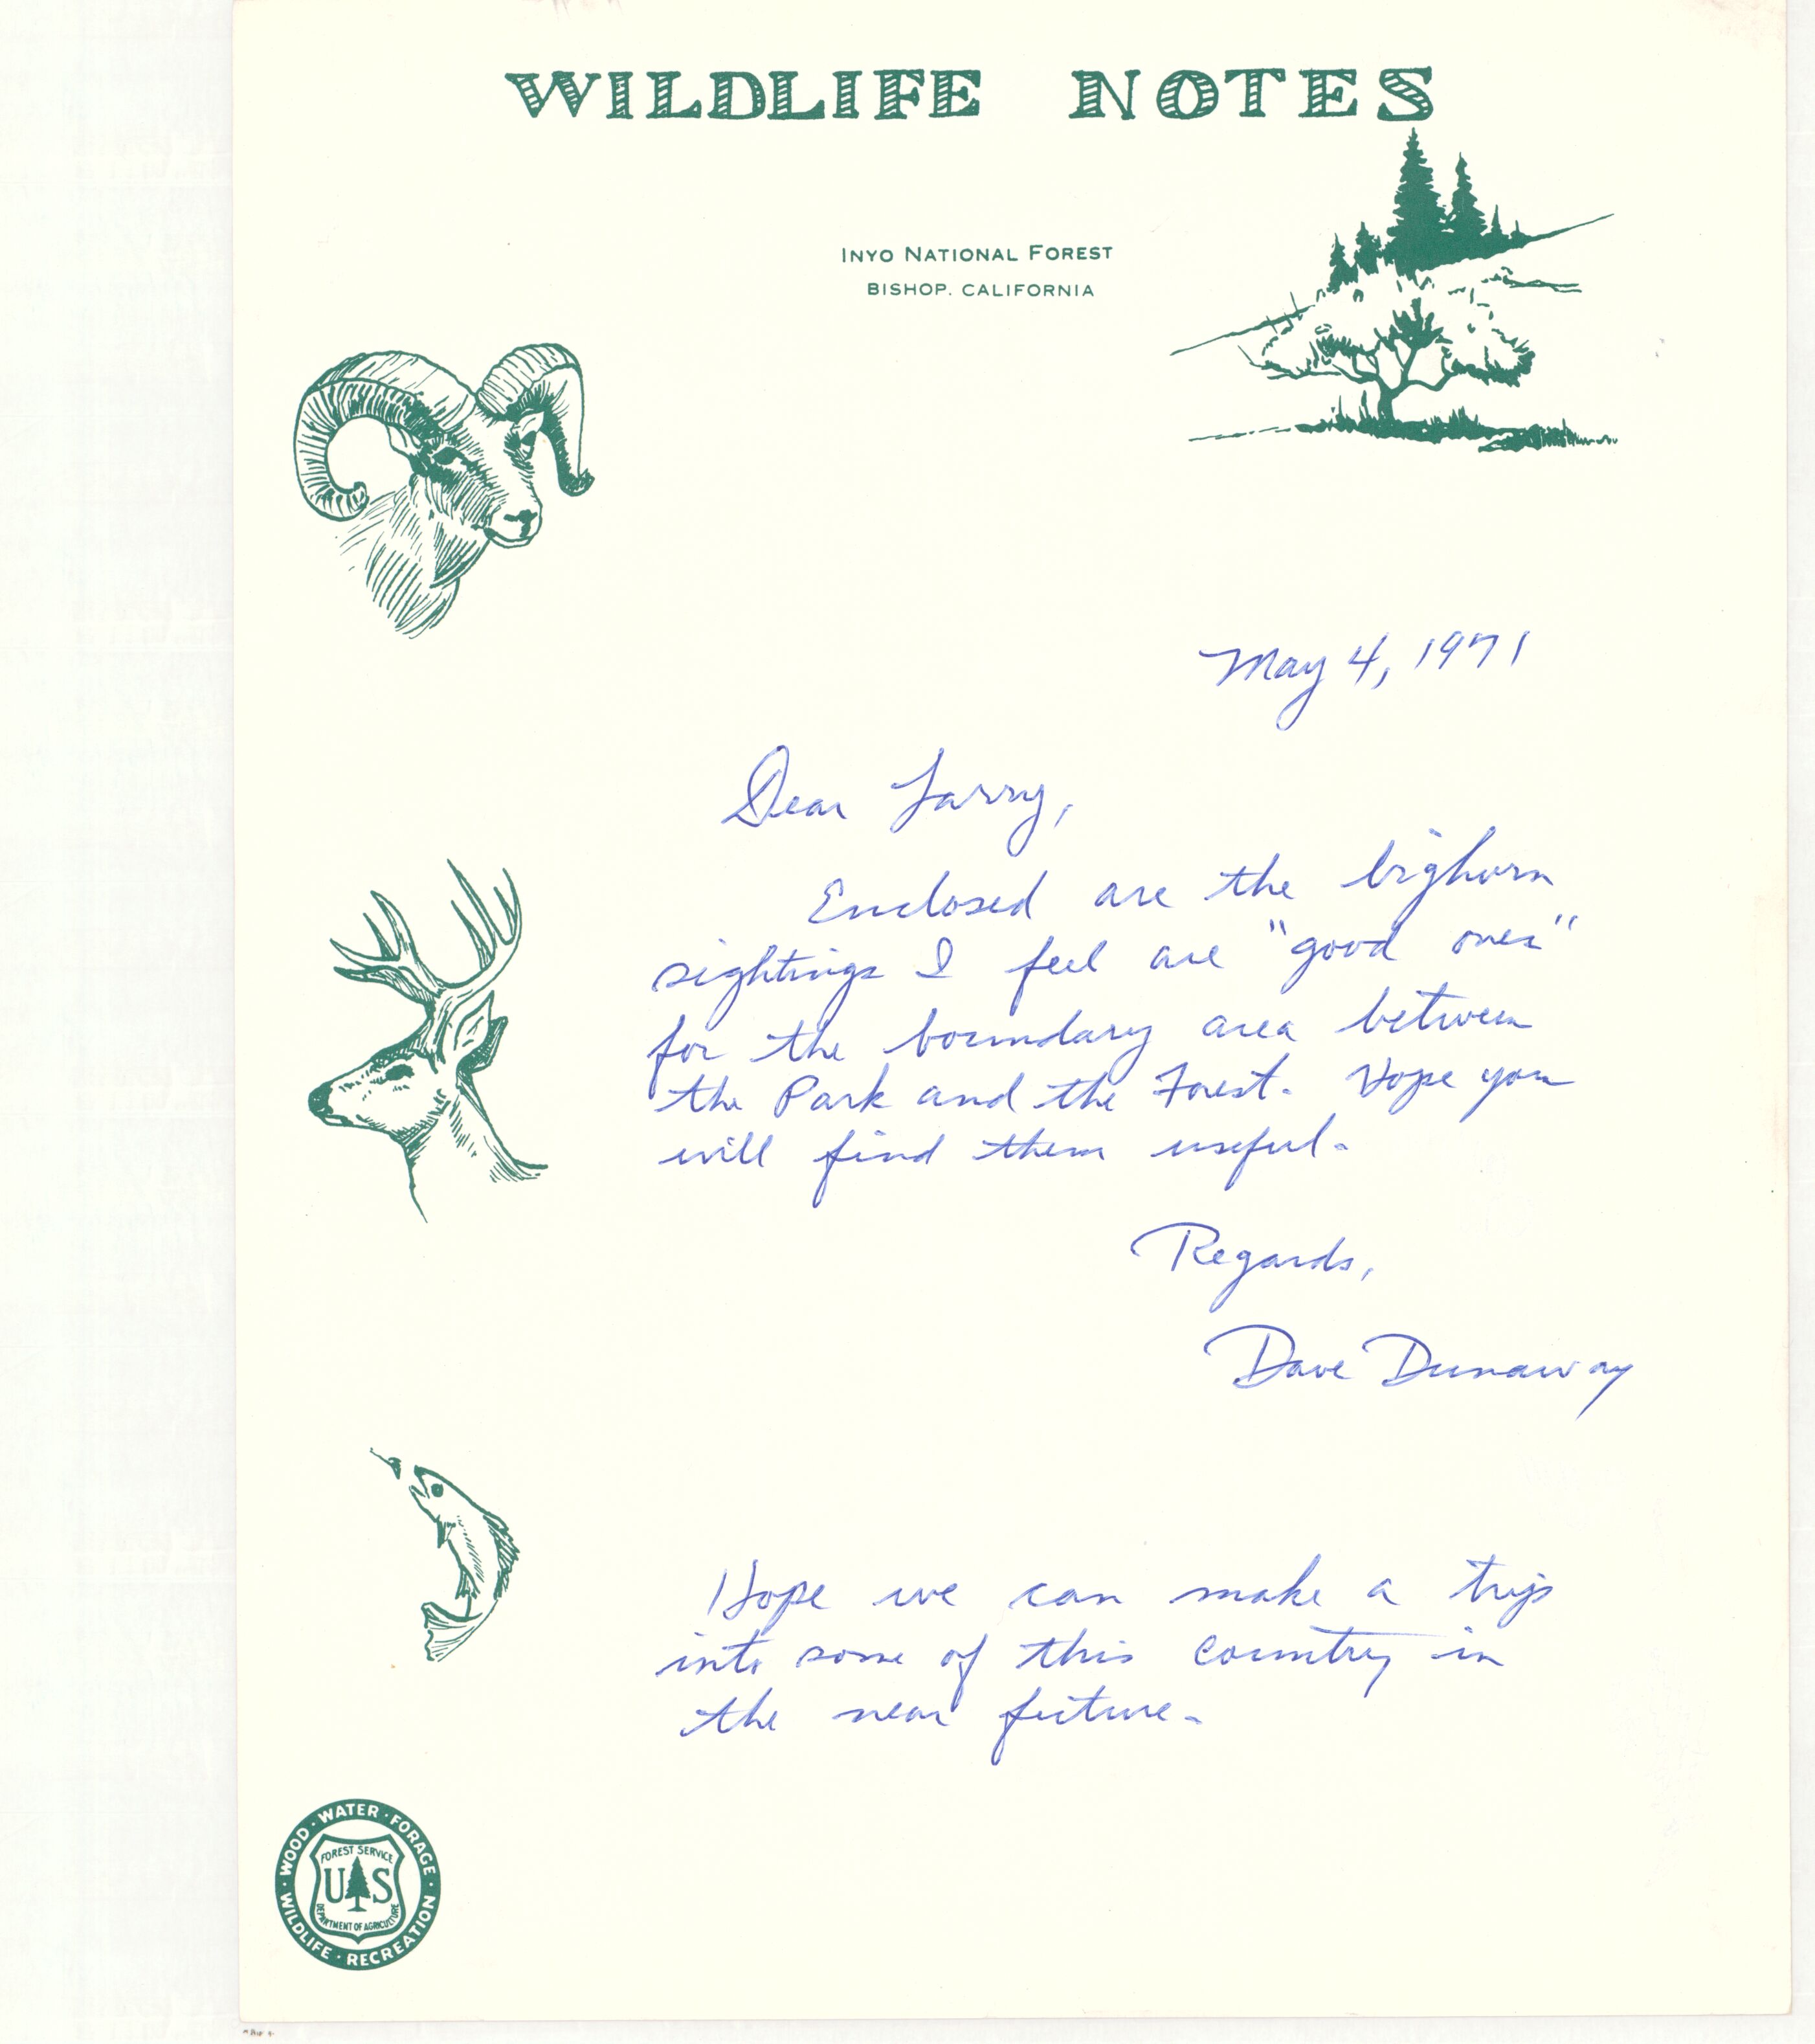 WILDLIFE NOTES
INYO NATIONAL FOREST
BISHOP, CALIFORNIA
May 4, 1971
Dear Larry,
Enclosed are the bighorn
sightings I feel are "good ones"
for the boundary area between
the Park and the Forest. Hope you
will find them useful.
Regards,
Dave Dunaway
Hope we can make a trip
into some of this country in
the near future.
WOOD · WATER · FORAGE · WILDLIFE · RECREATION ·
FOREST SERVICE
U S
DEPARTMENT OF AGRICULTURE